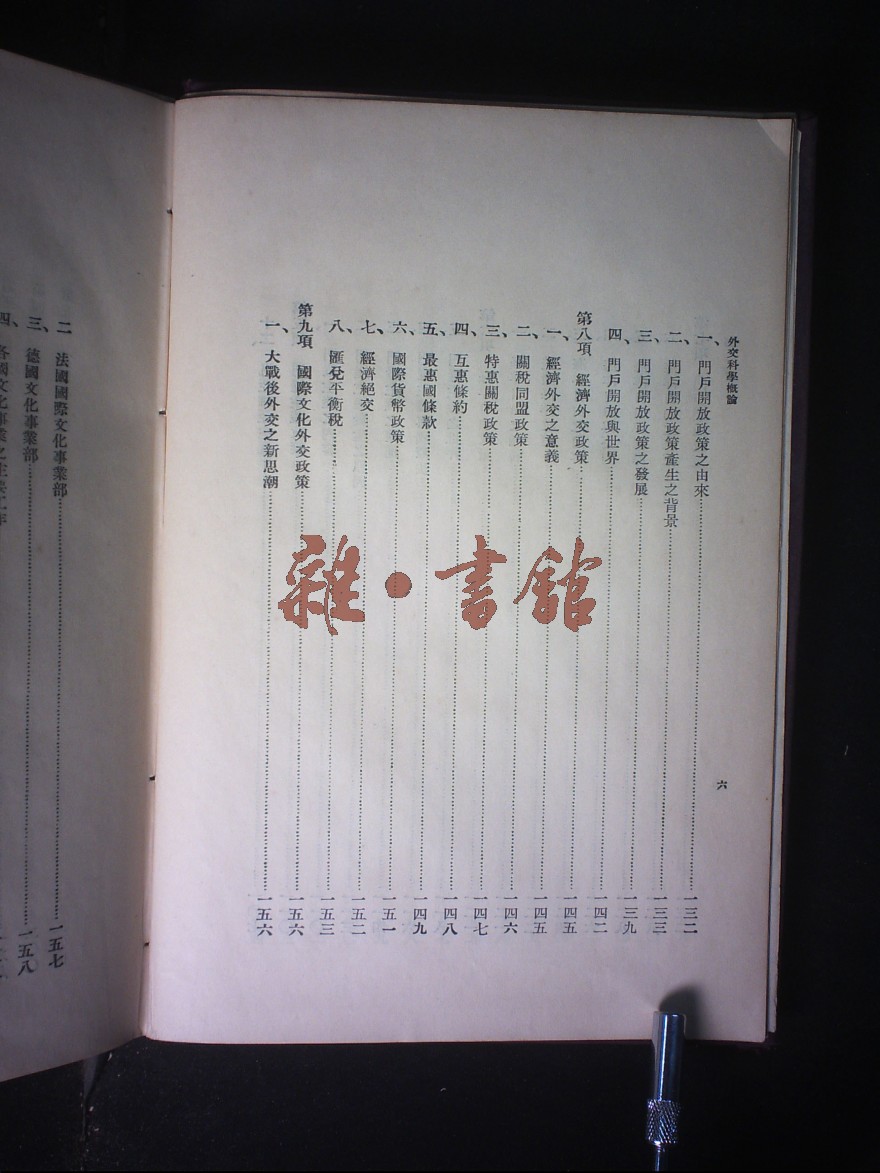 外交科學概論
六
一、門戶開放政策之由來 一三二
二、門戶開放政策產生之背景 一三三
三、門戶開放政策之發展 一三九
四、門戶開放與世界 一四二
第八項 經濟外交政策 一四五
一、經濟外交之意義 一四五
二、關稅同盟政策 一四六
三、特惠關稅政策 一四七
四、互惠條約 一四八
五、最惠國條款 一四九
六、國際貨幣政策 一五一
七、經濟絕交 一五二
八、匯兌平衡稅 一五三
第九項 國際文化外交政策 一五六
一、大戰後外交之新思潮 一五六
二 法國國際文化事業部 一五七
三、德國文化事業部 一五八
四、各國文化事業之
雜•書館